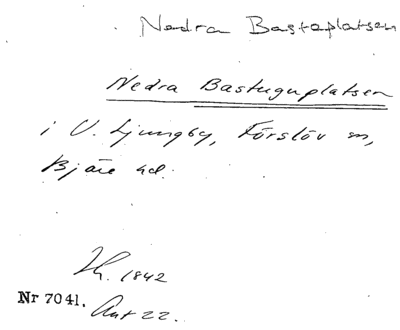 Nedra Bastaplatsen
Nedra Bastuguplatsen
i V. Ljungby, Förslöv sn,
Bjäre hd.
Th. 1842
Nr 7041. Akt 22.